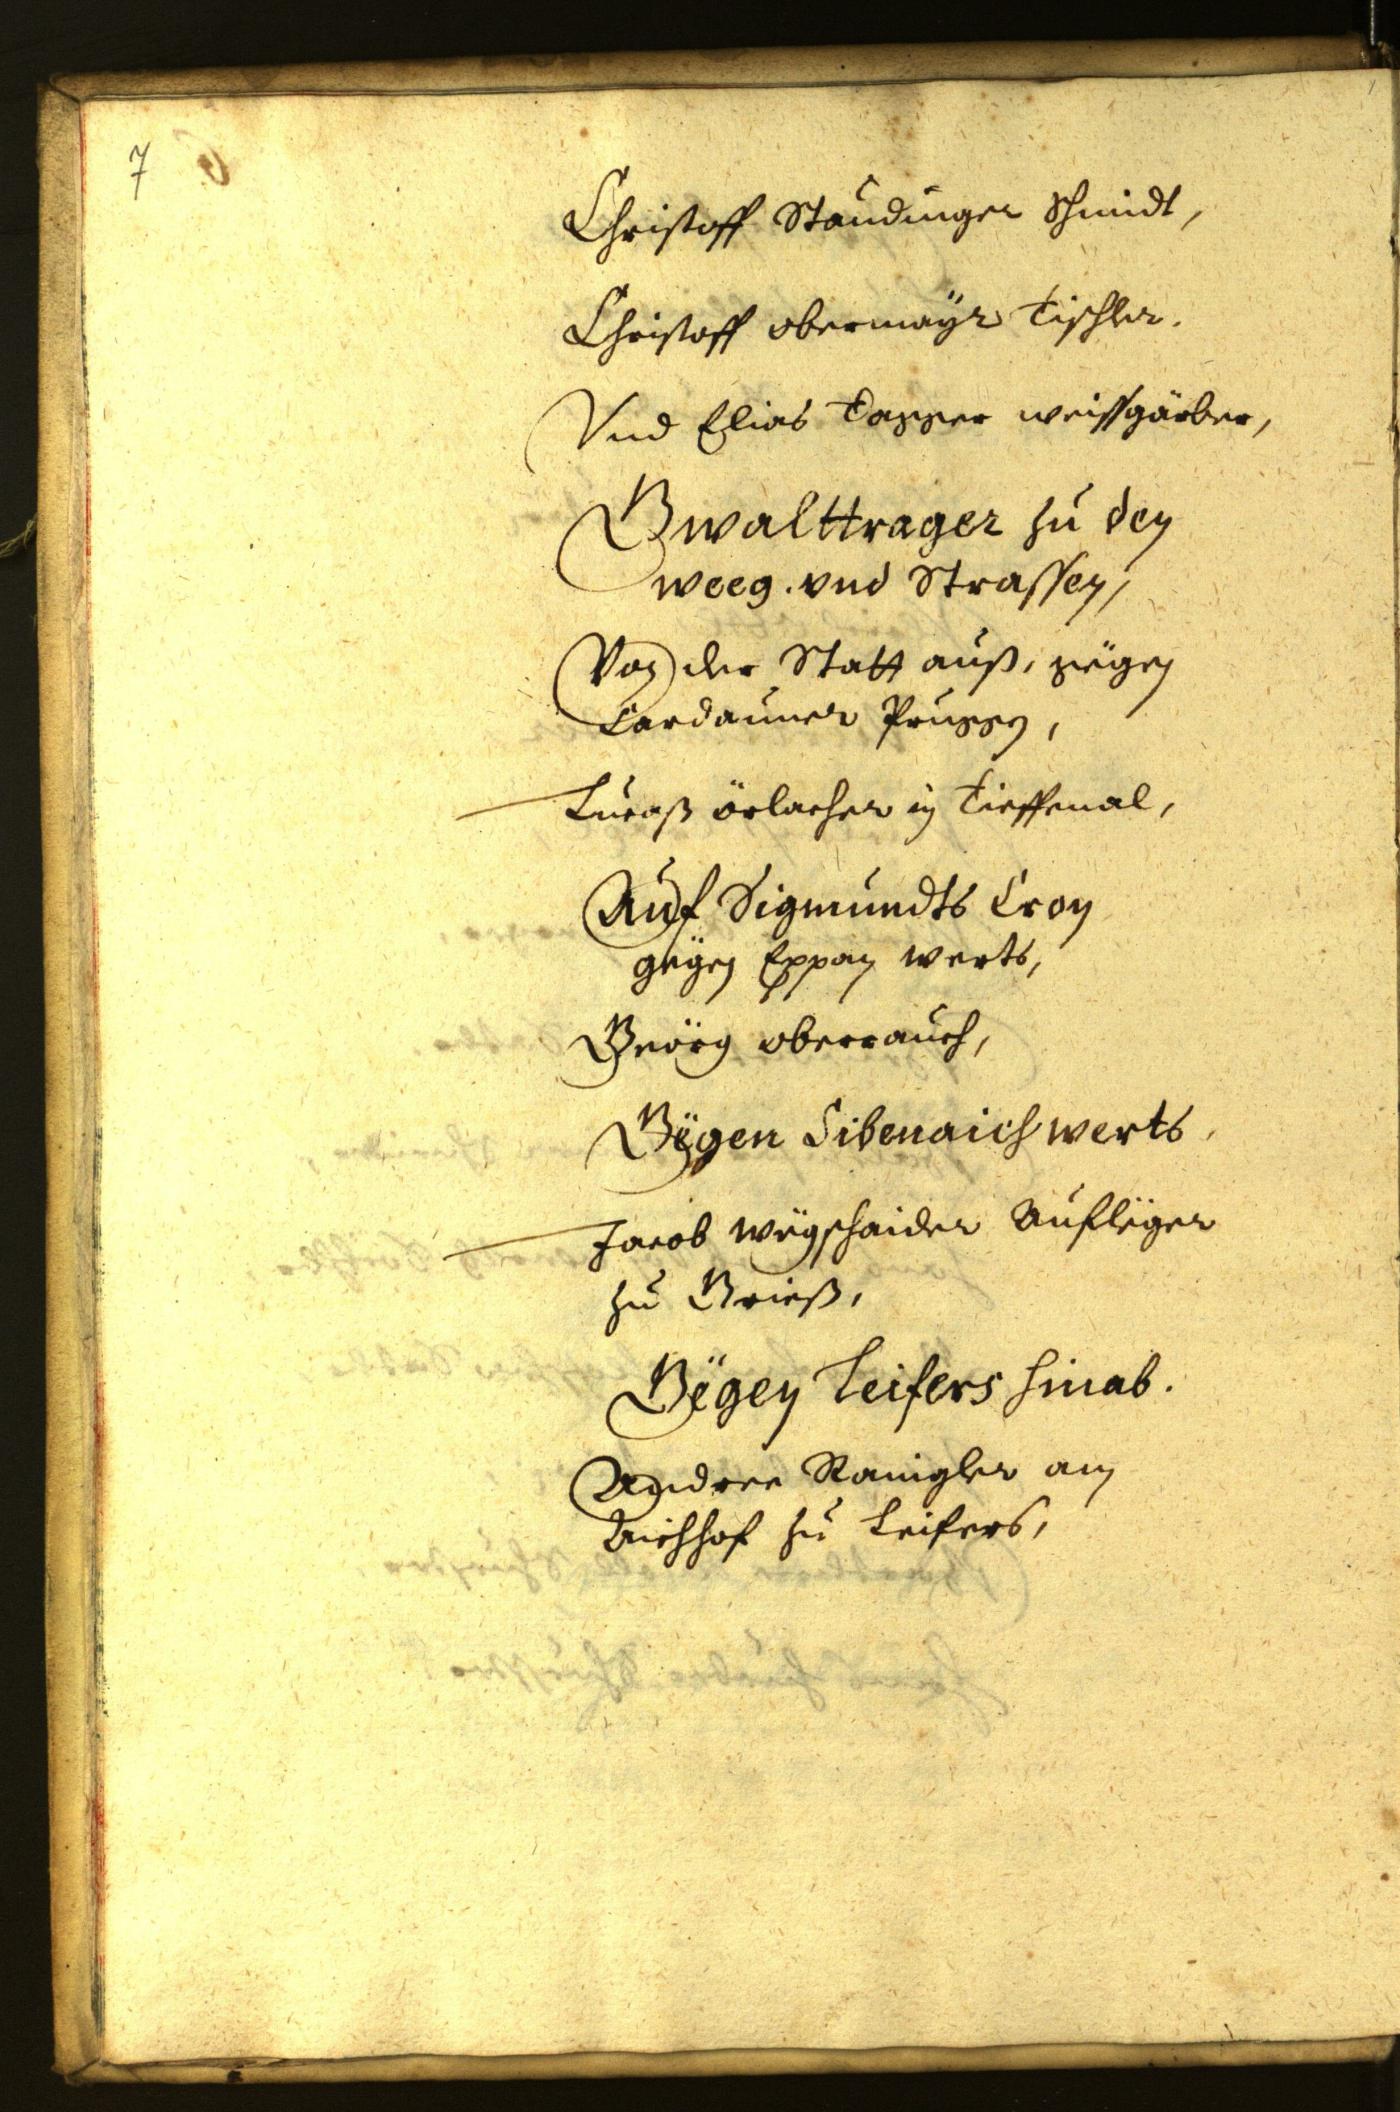 7
Christoff Staudinger Schmidt,
Christoff obermayr Tischler.
Vnd Elias Tapper weissgärber,
Gwalttrager zu den
weeg. vnd Strassen,
Von der Statt auß, gegen
Cardauner Pruggn,
Lucaß örlacher in Tieffenal,
Auf Sigmundts Cron
gegen Eppan werts,
Geörg oberrauch,
Gegen Sibenaich werts.
Jacob wëgschaider Aufleger
zu Grieß,
Gegen Leifers hinab.
Andree Ranigler am
Aichhof zu Leifers,